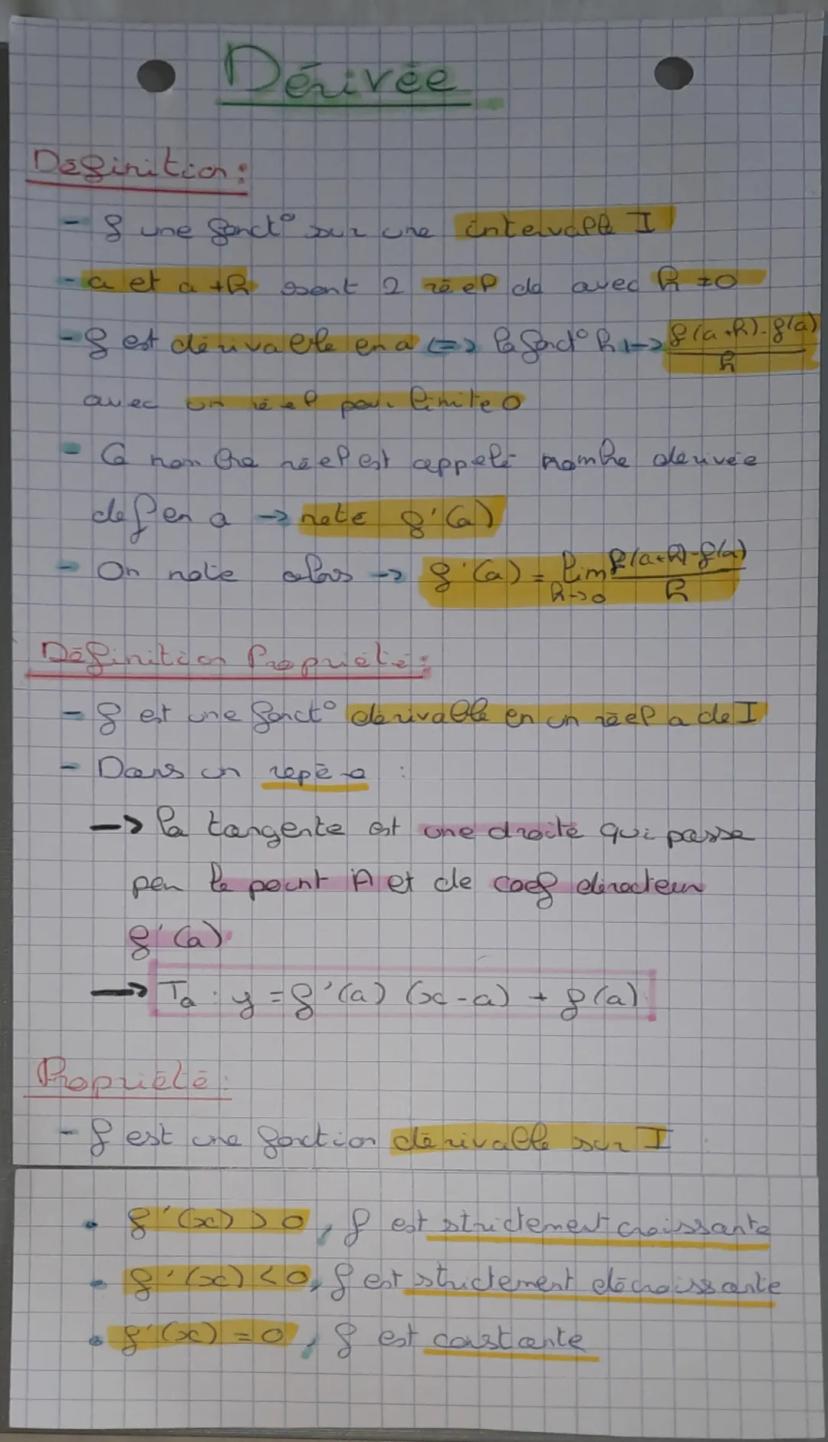 Dérivée
Définition :
- f une fonct° sur une intervalle I
- a et a + h sont 2 réel de avec h ≠ 0
- f est dérivable en a <=> la fonct° h |-> f(a+h)-f(a) / h
avec un réel pour limite 0
- Ce nombre réel est appelé nombre dérivée
de f en a -> noté f'(a)
- On note alors -> f'(a) = lim h->0 f(a+h)-f(a) / h
Définition Propriété :
- f est une fonct° dérivable en un réel a de I
- Dans un repère :
-> la tangente est une droite qui passe
par le point A et de coef directeur
f'(a)
-> Ta : y = f'(a) (x-a) + f(a)
Propriété :
- f est une fonction dérivable sur I :
• f'(x) > 0, f est strictement croissante
• f'(x) < 0, f est strictement décroissante
• f'(x) = 0, f est constante